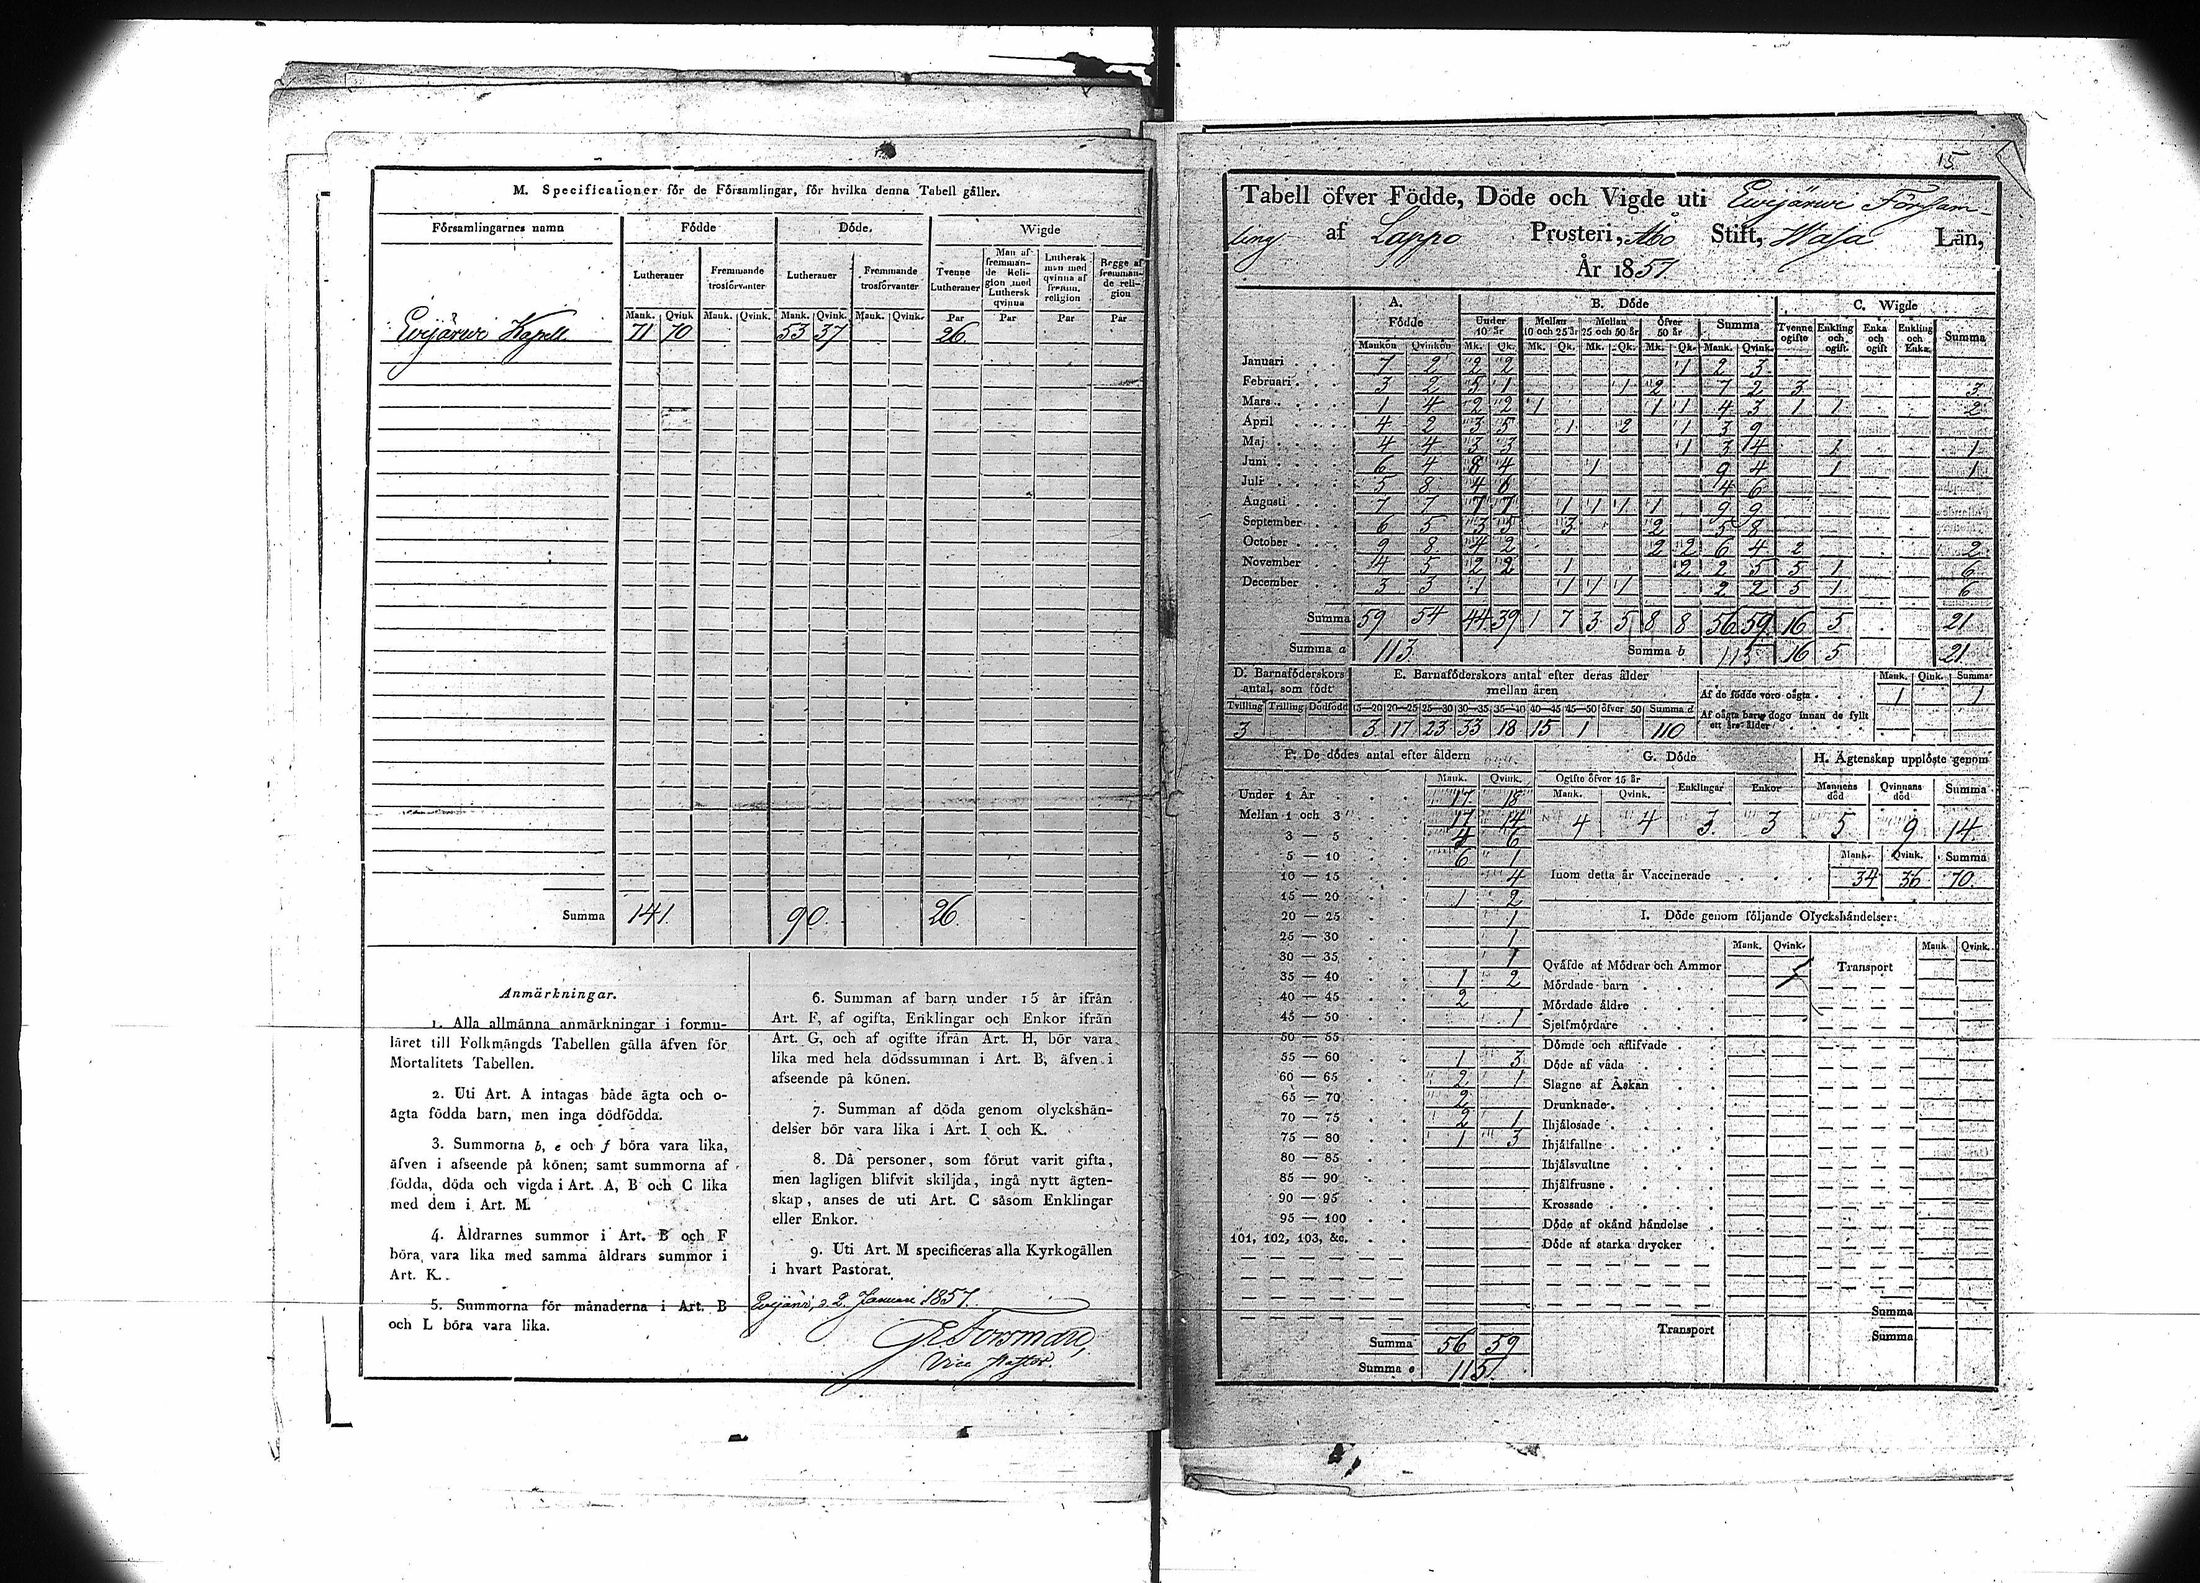 M. Specificationer för de Församlingar, för hvilka denna Tabell gäller.
Församlingarnes namn Födde Döde. Wigde
Lutheraner Fremmande trosförvanter Lutheraner Fremmande trosförvanter Tvenne Lutheraner Man af fremmande Religion med Luthersk qvinna Luthersk man med qvinna af fremm. religion Begge af fremmande religion
Mank. Qvink Mank. Qvink. Mank. Qvink. Mank. Qvink. Par Par Par Par
Evijärwi Kapell 71 70 53 37 26.
Summa 141. 90. 26.
Anmärkningar.
1. Alla allmänna anmärkningar i formu-
läret till Folkmängds Tabellen gälla äfven för
Mortalitets Tabellen.
2. Uti Art. A intagas både ägta och o-
ägta födda barn, men inga dödfödda.
3. Summorna b, e och f böra vara lika,
äfven i afseende på könen; samt summorna af
födda, döda och vigda i Art. A, B och C lika
med dem i Art. M.
4. Åldrarnes summor i Art. B och F
böra vara lika med samma åldrars summor i
Art. K.
5. Summorna för månaderna i Art. B
och L böra vara lika.
6. Summan af barn under 15 år ifrån
Art. F, af ogifta, Enklingar och Enkor ifrån
Art. G, och af ogifte ifrån Art. H, bör vara
lika med hela dödssumman i Art. B, äfven i
afseende på könen.
7. Summan af döda genom olyckshän-
delser bör vara lika i Art. I och K.
8. Då personer, som förut varit gifta,
men lagligen blifvit skiljda, ingå nytt ägten-
skap, anses de uti Art. C såsom Enklingar
eller Enkor.
9. Uti Art. M specificeras alla Kyrkogällen
i hvart Pastorat.
2. Januari 1857.
Vice Pastor.
15
Tabell öfver Födde, Döde och Vigde uti Evijärwi Församling
af Lappo Prosteri, Åbo Stift, Wasa Län,
År 1857.
A. Födde B. Döde C. Wigde
Under 10 år Mellan 10 och 25 år Mellan 25 och 50 år Öfver 50 år Summa Tvenne ogifte Enkling och ogift. Enka och ogift Enkling och Enka Summa
Mankön Qvinkön Mk. Qk. Mk. Qk. Mk. Qk. Mk. Qk. Mank. Qvink.
Januari 7 2 2 2 1 2 3
Februari 3 2 5 1 1 2 7 2 3 3
Mars 1 4 2 2 1 1 1 4 3 1 1 2
April 4 2 3 5 1 2 1 3 9
Maj 4 4 3 3 1 3 4 1 1
Juni 6 4 8 4 1 9 4 1 1
Juli 5 8 4 6 4 6
Augusti 7 7 7 7 1 1 1 1 9 9
September 6 5 3 5 3 2 5 8
October 9 8 4 2 2 2 6 4 2 2
November 4 5 2 2 1 2 2 5 5 1 6
December 3 3 1 1 1 1 2 2 5 1 6
Summa 59 54 44 39 1 7 3 5 8 8 56 59 16 5 21
Summa a 113. Summa b 115 16 5 21.
D. Barnaföderskors antal, som födt E. Barnaföderskors antal efter deras ålder mellan åren Mank. Qink. Summa
Af de födde voro oägta 1 1
Tvilling Trilling Dödfödd 15—20 20—25 25—30 30—35 35—40 40—45 45—50 öfver 50 Summa d
Af oägta barn dogo innan de fyllt ett års ålder
3 3 17 23 33 18 15 1 110
F. De dödes antal efter åldern
Mank. Qvink.
Under 1 År 17 18
Mellan 1 och 3 17 14
3 — 5 4 6
5 — 10 6 1
10 — 15 4
15 — 20 1 2
20 — 25 1
25 — 30 1
30 — 35 1
35 — 40 1 2
40 — 45 2
45 — 50 1
50 — 55
55 — 60 1 3
60 — 65 2 1
65 — 70 2
70 — 75 2 1
75 — 80 1 3
80 — 85
85 — 90
90 — 95
95 — 100
101, 102, 103, &c.
Summa 56 59
Summa e 115
G. Döde H. Ägtenskap upplöste genom
Ogifte öfver 15 år Enklingar Enkor Mannens död Qvinnans död Summa
Mank. Qvink.
4 4 3 3 5 9 14.
Mank. Qvink. Summa
Inom detta år Vaccinerade 34 36 70.
I. Döde genom följande Olyckshändelser:
Mank. Qvink. Mank Qvink.
Qväfde af Mödrar och Ammor Transport
Mördade barn
Mördade äldre
Sjelfmördare
Dömde och aflifvade
Döde af våda
Slagne af Åskan
Drunknade
Ihjälosade
Ihjälfallne
Ihjälsvultne
Ihjälfrusne
Krossade
Döde af okänd händelse
Döde af starka drycker
Summa
Transport Summa